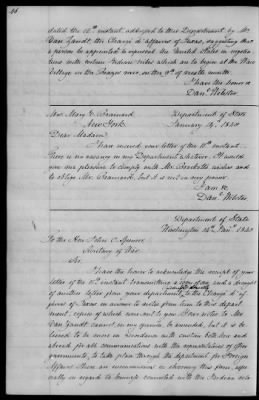 46
dated the 12th instant, addressed to this Department by Mr.
Van Zandt, the Chargé d'affaires of Texas, suggesting that
a person be appointed to represent the United States in negotia-
tions with certain Indian tribes which are to begin at the Waco
Village on the Brazos river, on the 9th of month.
I have the honor &
Danl. Webster
Mrs. Mary E. Brainard
New York.
Department of State
January 1843
Dear Madam:
I have received your letter of the instant.
There is no vacancy in my Department whatever. It would
give me pleasure to comply with Mr. wishes and
to oblige Mr. Brainard, but it is not in my power
I am &c
Danl. Webster
Department of State
Washington Jany. 1843
To the Hon. John C. Spencer,
Secretary of War
Sir,
I have the honor to acknowledge the receipt of your
letter of the instant, transmitting a copy and a draught
of another letter from your department to the Chargé d'
affaires of Texas in answer to a letter from him to this depart-
ment, copies of which were sent to you. Your letter to Mr.
Van Zandt cannot, in my opinion, be amended, but it is be-
lieved to be more in accordance with custom both here and
abroad for all communications with the representatives of other
governments, to take place through the department for Foreign
Affairs. There are inconveniences in observing this form, espe-
cially in regard to business connected with the Indian rela-